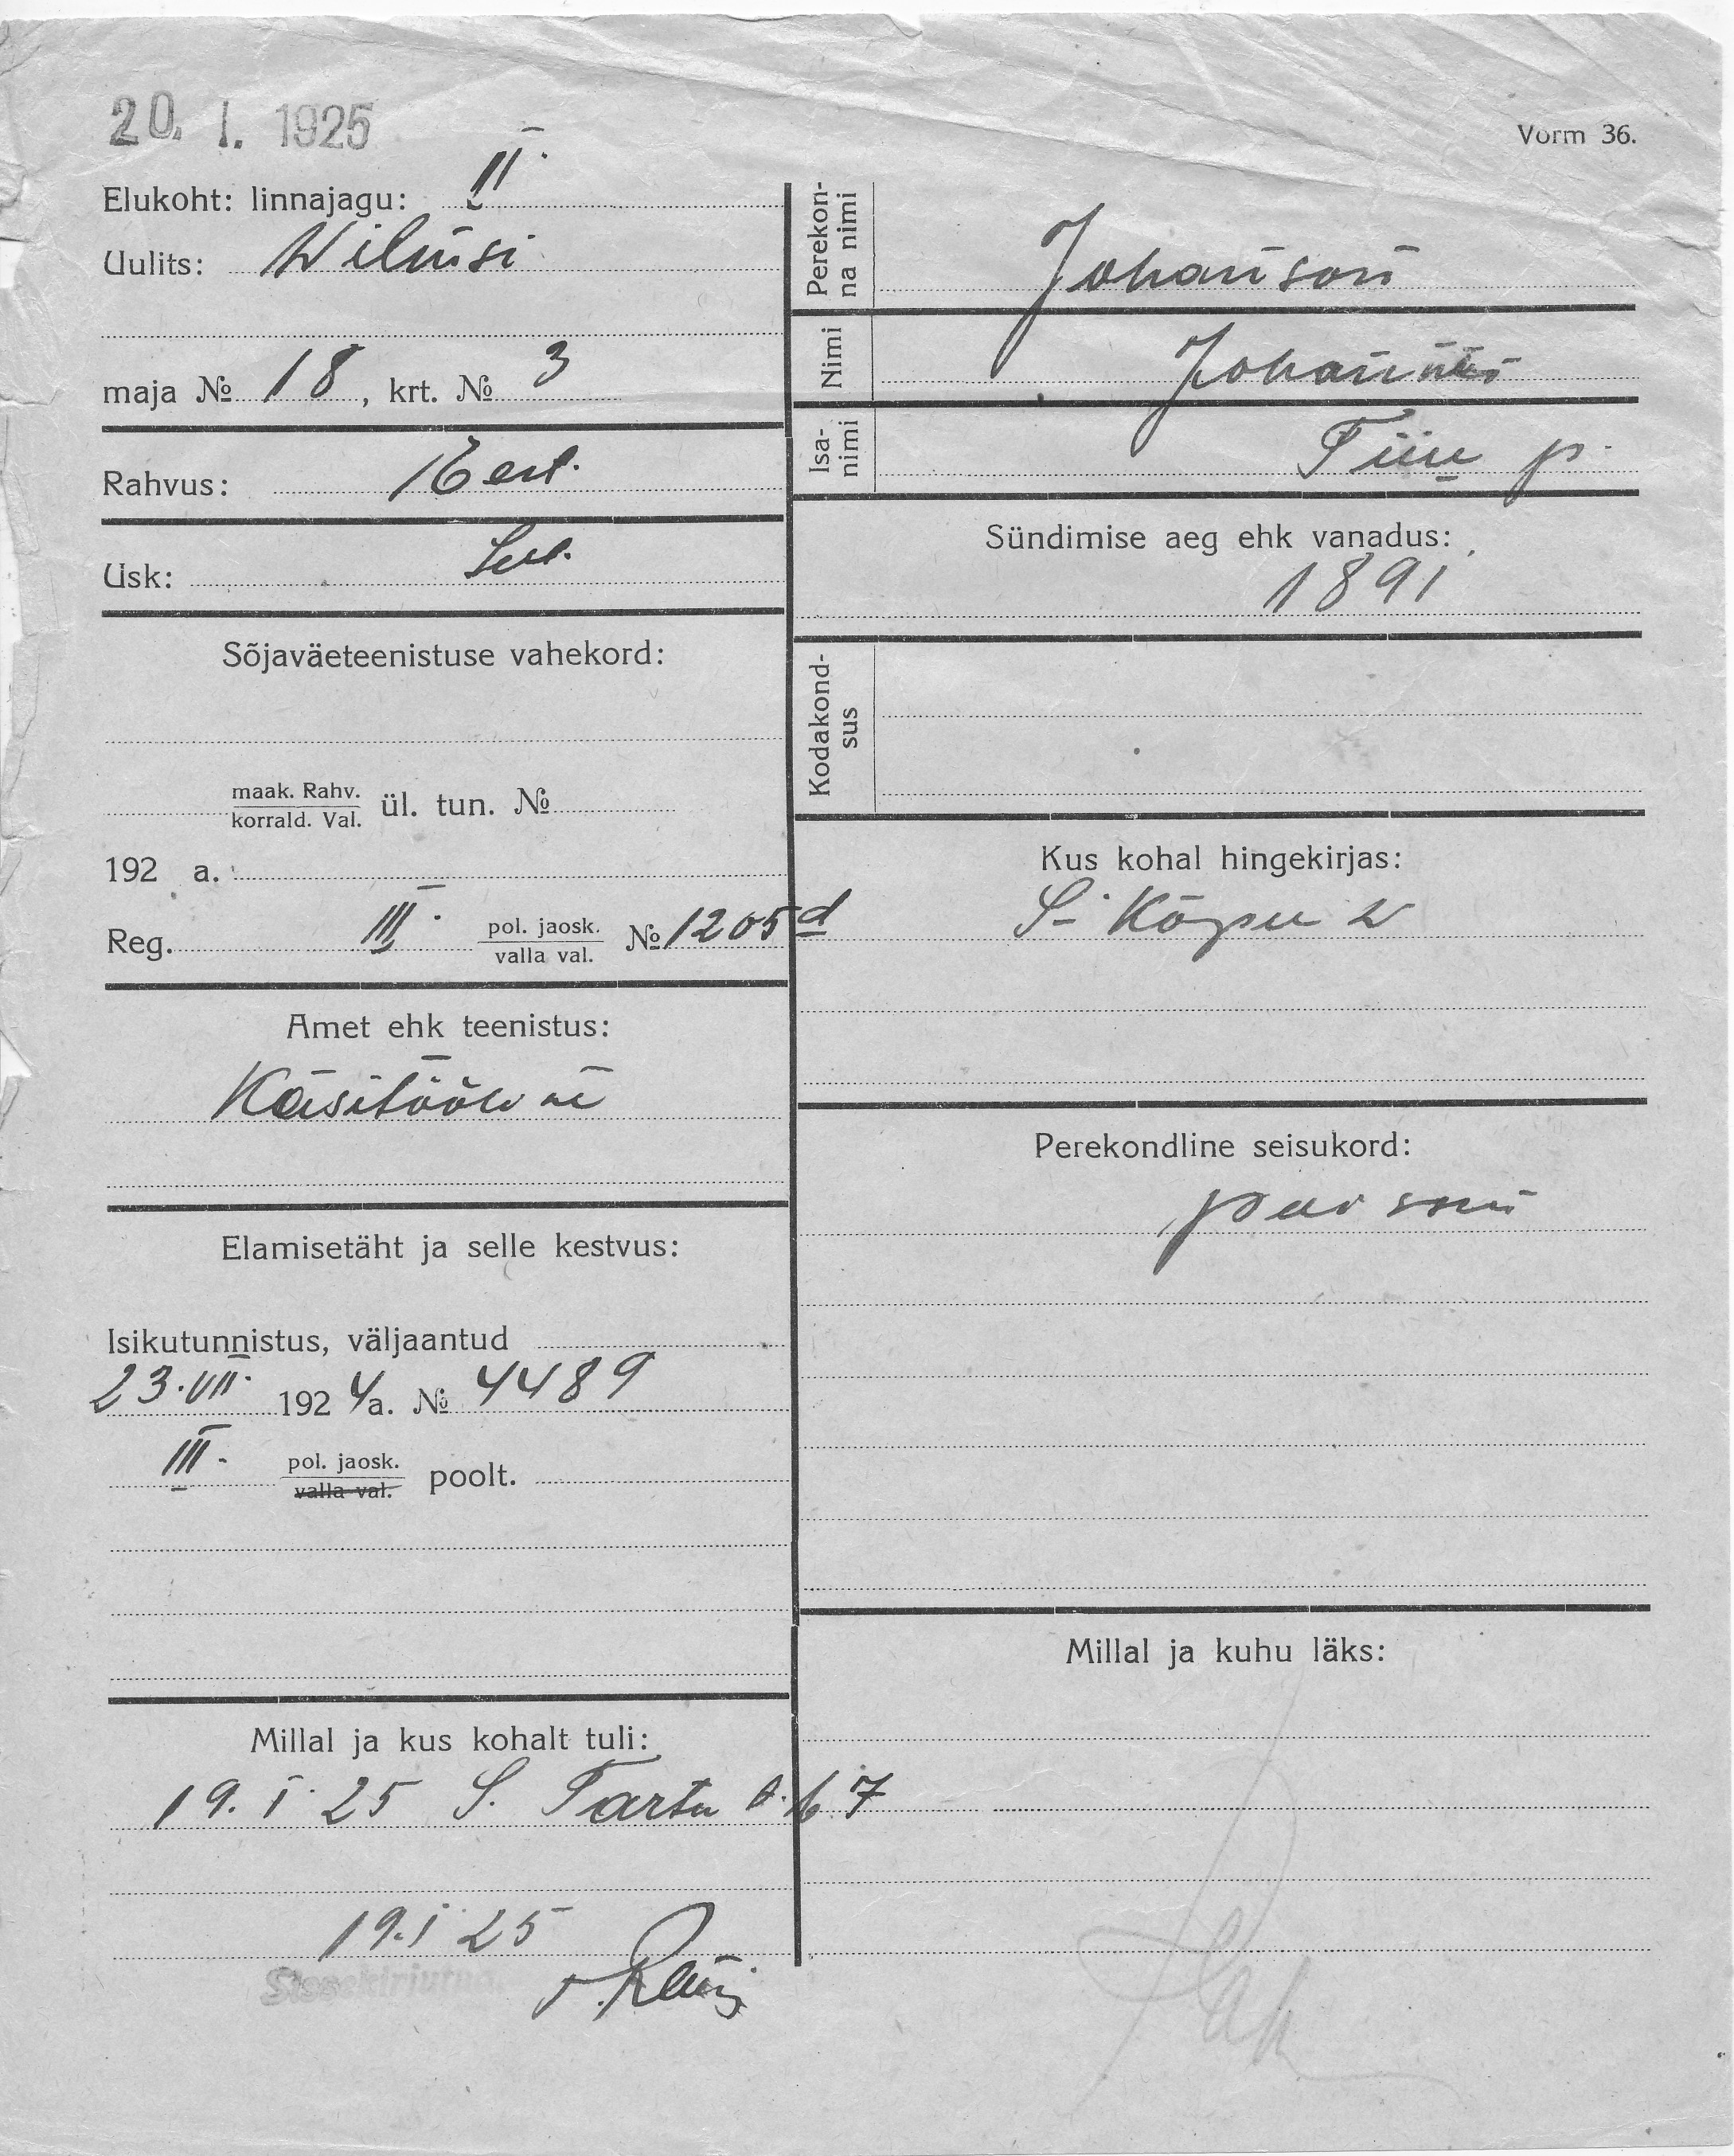 20. I. 1925
Vorm 36.
Elukoht: linnajagu: II.
Uulits: Wilmsi
maja № 18, krt. № 3
Rahvus: Eest.
Usk: Lut.
Sõjaväeteenistuse vahekord:
maak. Rahv.
korrald. Val. ül. tun. №
192 a.
Reg. III. pol. jaosk.
valla val. № 1205d
Amet ehk teenistus:
Käsitööline
Elamisetäht ja selle kestvus:
Isikutunnistus, väljaantud
23. VII. 1924 a. № 4489
III. pol. jaosk.
valla val. poolt.
Millal ja kus kohalt tuli:
19. I. 25 S. Tartu 67
19. I 25
Sissekirjutud
Perekon-
na nimi
Johanson
Nimi
Johannes
Isa-
nimi
Tiiu p.
Sündimise aeg ehk vanadus:
1891
Kodakond-
sus
Kus kohal hingekirjas:
S. Kõpu w
Perekondline seisukord:
Millal ja kuhu läks: